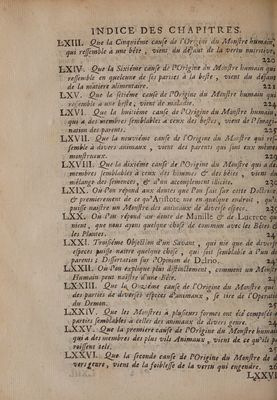 INDICE DES CHAPITRES.
LXIII. Que la Cinquiéme cause de l'Origine du Monstre humain,
qui ressemble à une bête, vient du défaut de la vertu nutritive,
220
LXIV. Que la Sixiéme cause de l'Origine du Monstre humain qui
ressemble en quelcune de ses parties à la beste, vient du défaut
de la matiere alimentaire. 221
LXV. Que la setiéme cause de l'Origine du Monstre humain qui
ressemble à une beste, vient de maladie.
LXVI. Que la huitiéme cause de l'Origine du Monstre humain,
qui a des membres semblables à ceux des bestes, vient de l'imagi-
nation des parents. 225
LXVII. Que la neuviéme cause de l'Origine du Monstre qui res-
semble à divers animaux, vient des parents qui sont eux mêmes
monstrueux.
LXVIII. Que la dixiéme cause de l'Origine du Monstre qui a des
membres semblables à ceux des hommes & des bêtes, vient du
mélange des semences, & d'un accouplement illicite.
LXIX. Où l'on répond aux doutes que l'on fait sur cette Doctrine
& premierement de ce qu'Aristote nie en quelque endroit, qu'il
puisse naistre un Monstre des animaux de divers espece.
LXX. Où l'on répond au doute de Manille & de Lucrece qui
nient, que nous ayons quelque chose de commun avec les Bêtes &
les Plantes.
LXXI. Troisiéme Objection d'un Savant, qui nie que de diverses
especes puisse naitre quelque chose, qui soit semblable à l'un des
parents; Dissertation sur l'Opinion de Delrio.
LXXII. Où l'on explique plus distinctement, comment un Monstre
Humain peut naistre d'une Bête.
LXXIII. Que la Onzéme cause de l'Origine du Monstre qui
des parties de diverses especes d'animaux, se tire de l'Operation
du Demon.
LXXIV. Que les Monstres à plusieurs formes ont été composés
parties semblables à celles des animaux de divers genre.
LXXV. Que la premiere cause de l'Origine du Monstre humain
qui a des membres des plus vils Animaux, vient de ce qu'ils pa-
roissent tels.
LXXVI. Que la seconde cause de l'Origine du Monstre de
vers genre, vient de la foiblesse de la vertu qui engendre.
LXXVI